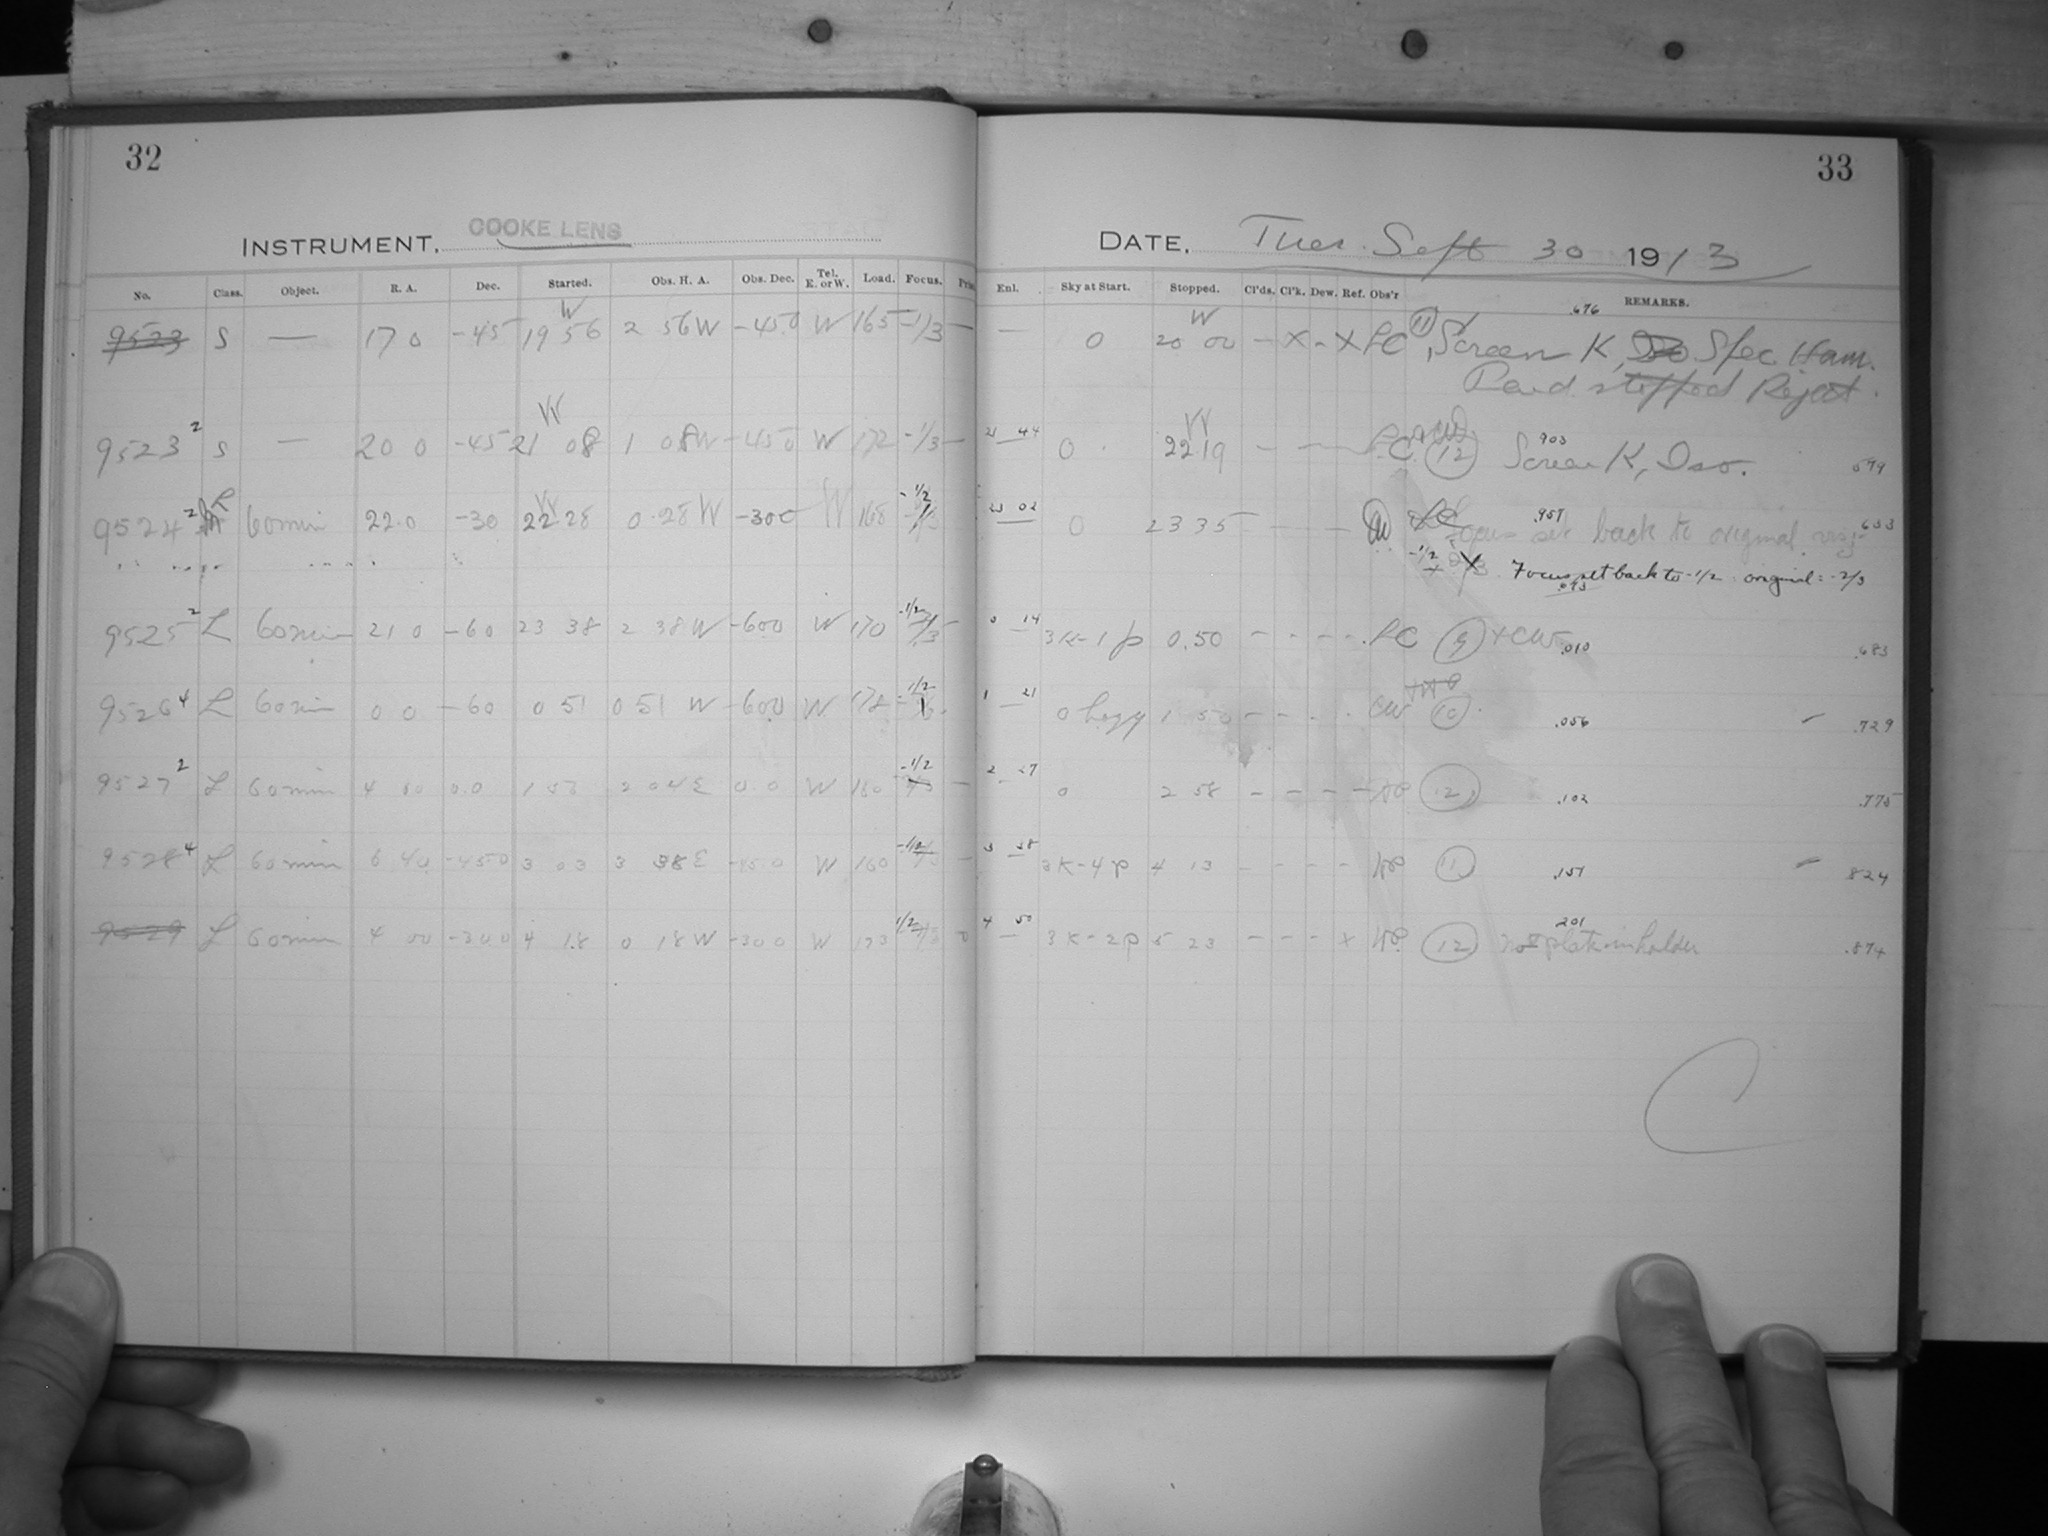 32
INSTRUMENT, COOKE LENS
No. Class. Object. R. A. Dec. Started. Obs. H. A. Obs. Dec. Tel. E. or W. Load. Focus.
9523 S — 17 0 -45 W 19 56 2 56 W -45.0 W 165 -1/3 —
9523 2 S — 20 0 -45 W 21 08 1 08 W -45 0 W 172 -1/3 —
9524 2 R 60 min 22.0 -30 W 22 28 0.28 W -300 W 168 -1/2
9525 2 L 60 min 21 0 -60 23 38 2 38 W -600 W 170 -1/2
9526 4 L 60 min 0 0 -60 0 51 0 51 W -600 W 172 -1/2
9527 2 L 60 min 4 00 0.0 1 53 2 04 E 0.0 W 180 -1/2 —
9528 4 L 60 min 6 40 -450 3 03 3 38 E -45.0 W 160 -1/2 —
9529 L 60 min 4 00 -300 4 18 0 18 W -300 W 173 1/2
33
DATE, Tues. Sept 30 1913
Enl. Sky at Start. Stopped. Cl'ds. Cl'k. Dew. Ref. Obs'r REMARKS.
— 0 W 20 00 - X - X LC 11 Screen K, Iso Spec. Ham. .676
stopped Reject.
21 44 0 W 22 19 - - - LC 12 Screen K, Iso. 903 .699
23 02 0 23 35 - - - CW Focus set back to original .957 .633
-1/2 Focus set back to -1/2 original = -2/3
0 14 3K-1p 0.50 - - - - LC 9 + CW .010 .683
1 21 0 hazy 1 50 - - - - CW 10 .056 .729
2 27 0 2 58 - - - - 12 .102 .775
3 38 3K-4p 4 13 - - - - 11 .151 824
4 50 3K-2p 5 23 - - - x 12 no plate in holder 201 .874
C